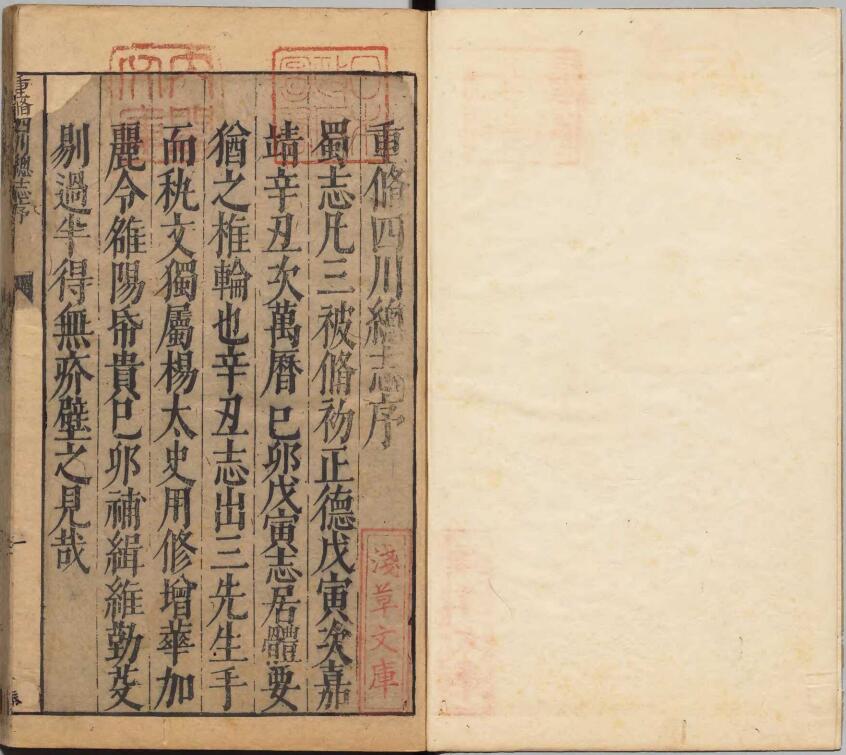 重脩四川總志序
蜀志凡三被脩初正德戊寅次嘉
靖辛丑次萬曆己卯戊寅志居體要
猶之椎輪也辛丑志出三先生手
而秇文獨屬楊太史用修增華加
麗令雒陽帋貴己卯補緝維勤芟
剔過半得無夯壁之見哉
重脩四川總志序
一
淺草文庫